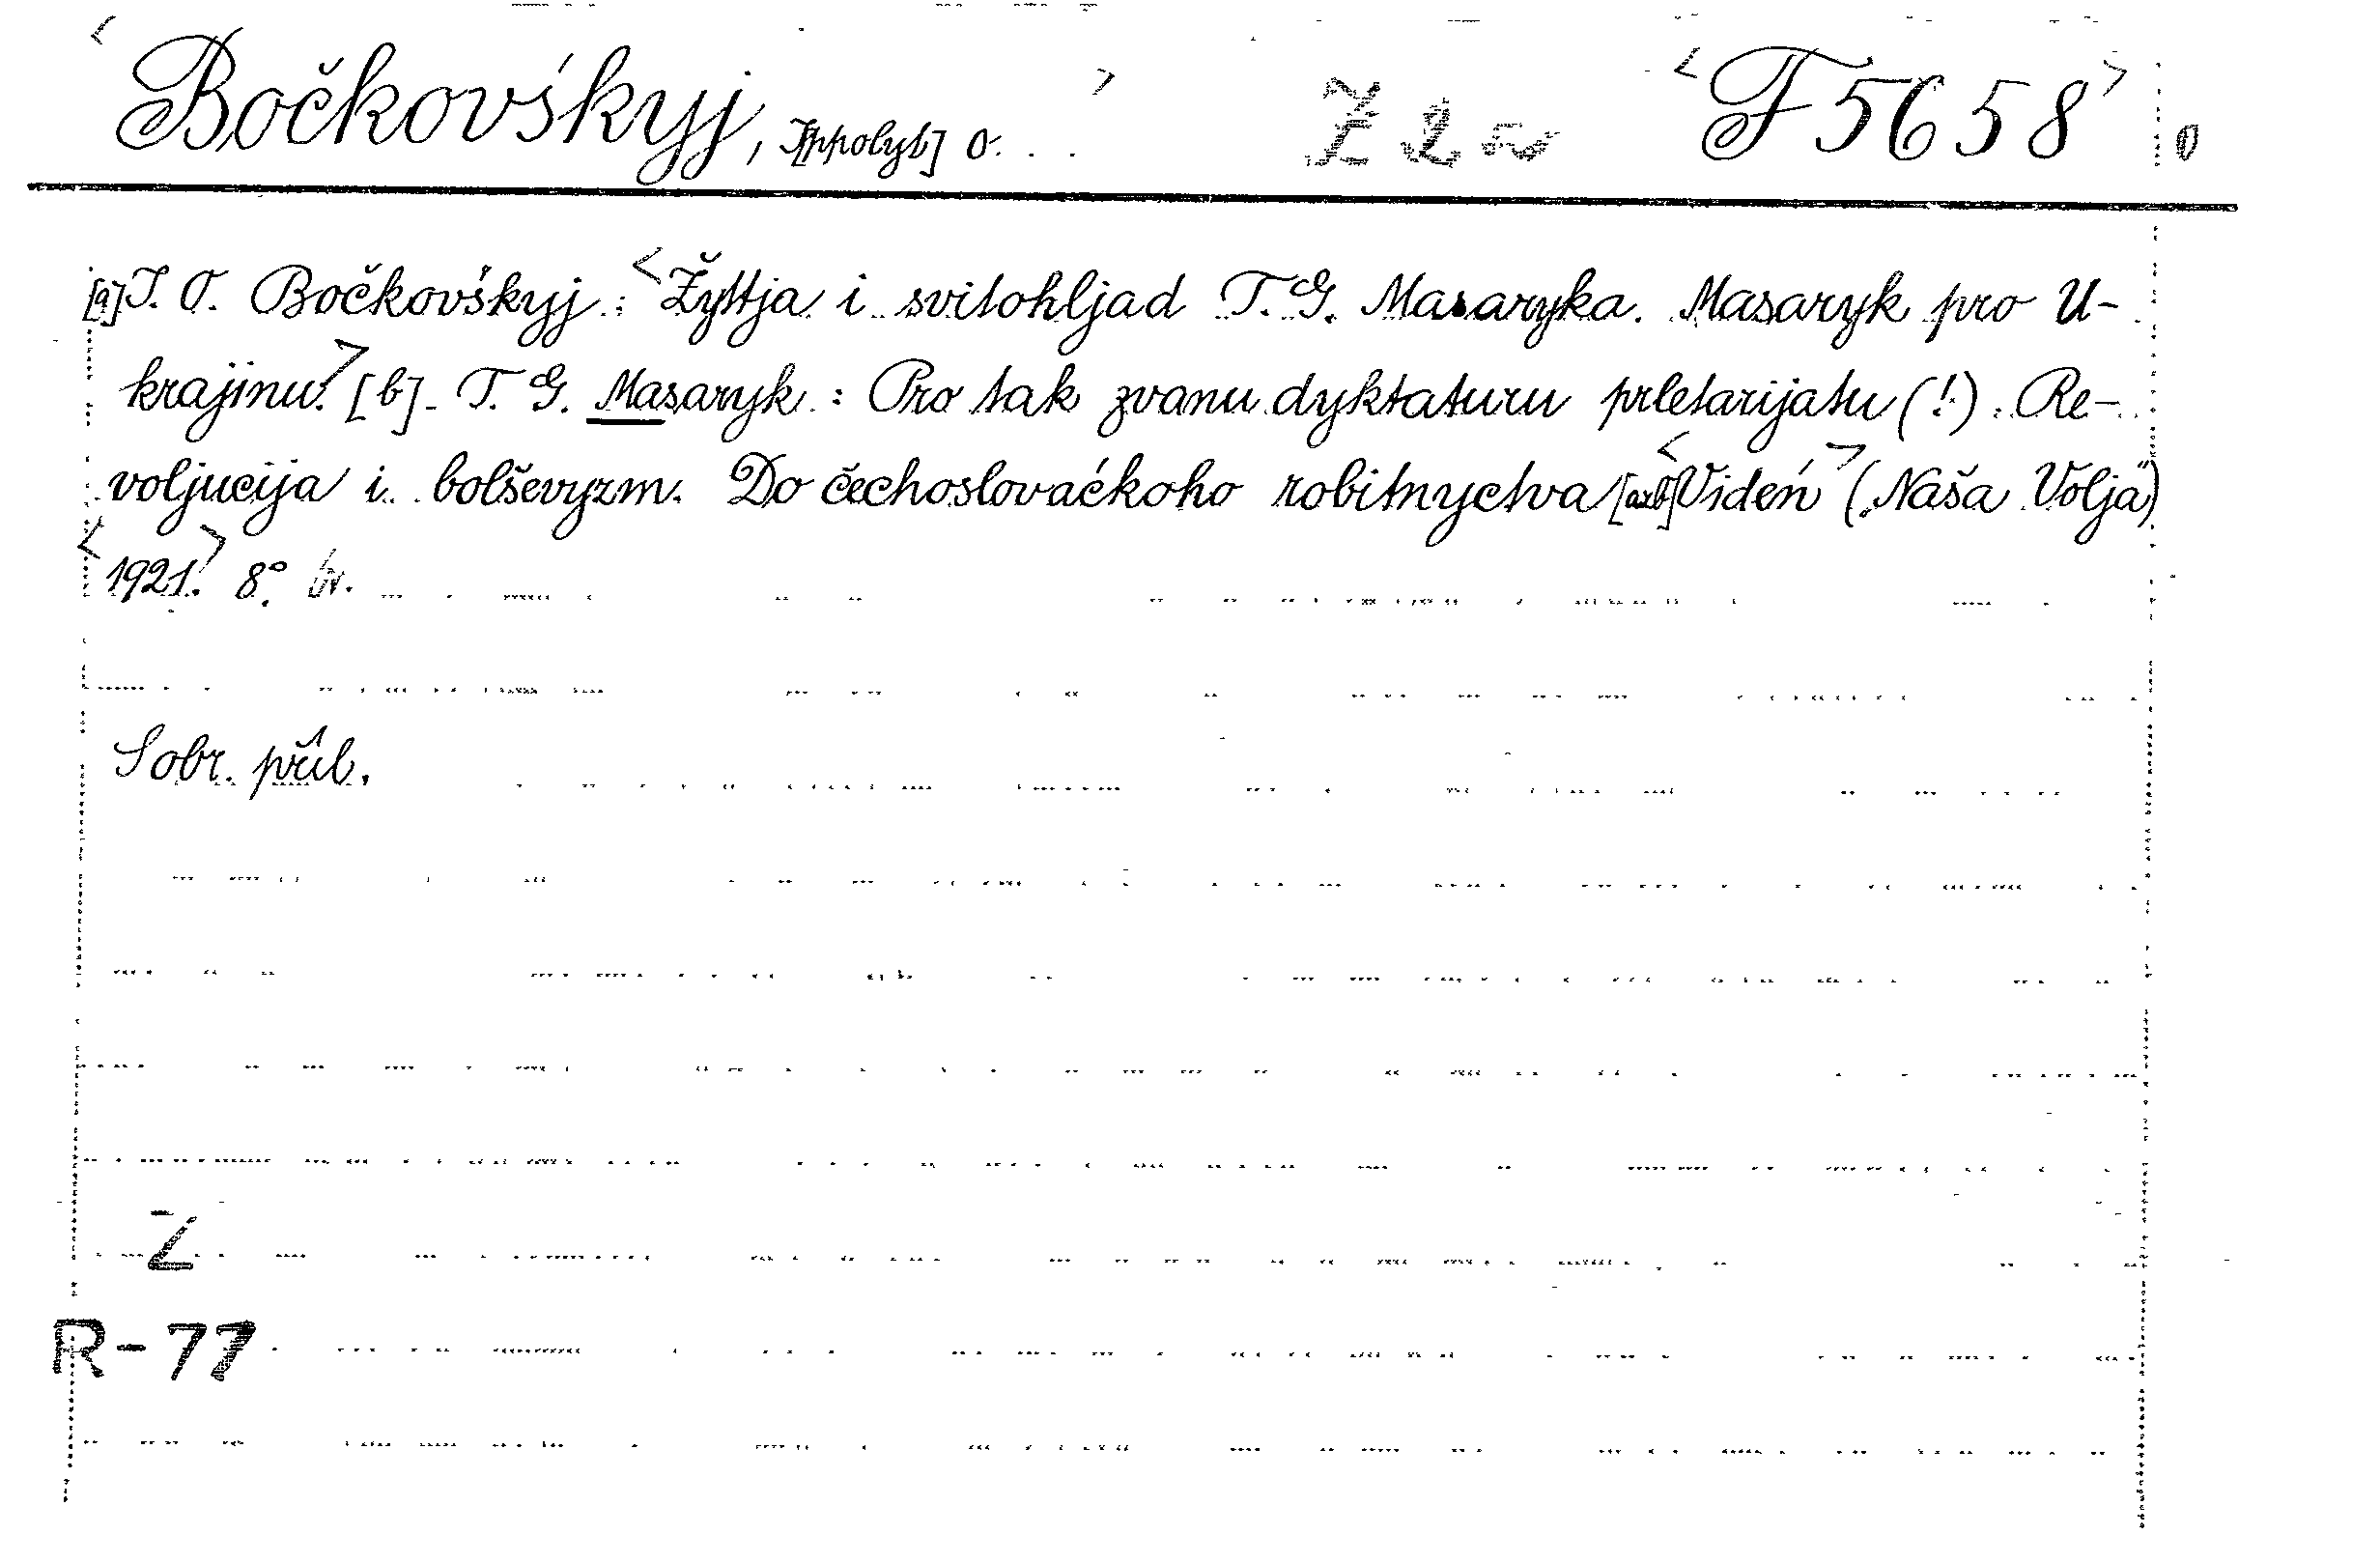 Bočkovśkyj, I[ppolyt] O. . . Z 2 50 F 5658 0
[a] I. O. Bočkovśkyj: Žyttja i svitohljad T. G. Masaryka. Masaryk pro U-
krajinu. [b] T. G. Masaryk: Pro tak zvanu dyktaturu prletarijatu (!). Re-
voljucija i bolševyzm. Do čechoslovaćkoho robitnyctva [a×b] Videń („Naša Volja")
1921. 8°. br.
Sobr. příl.
Z
R-77